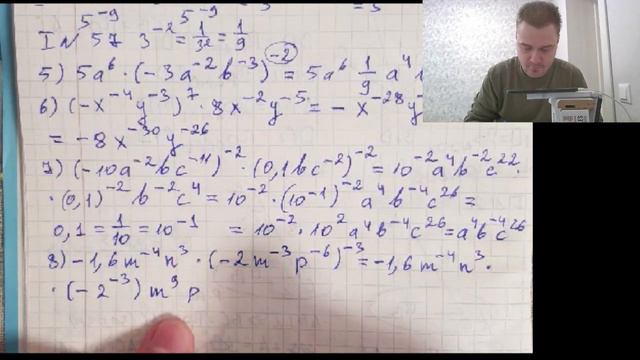 5⁻⁹ 5⁻⁹
IN 57 3⁻² = 1/3² = 1/9
5) 5a⁶ · (-3a⁻²b⁻³)⁻² = 5a⁶ 1/9 a⁴
6) (-x⁻⁴y⁻³)⁷ · 8x⁻²y⁻⁵ = -x⁻²⁸y
= -8x⁻³⁰y⁻²⁶
7) (-10a⁻²bc⁻¹¹)⁻² · (0,1bc⁻²)⁻² = 10⁻²a⁴b⁻²c²² ·
· (0,1)⁻²b⁻²c⁴ = 10⁻² · (10⁻¹)⁻²a⁴b⁻⁴c²⁶ =
0,1 = 1/10 = 10⁻¹ = 10⁻² · 10²a⁴b⁻⁴c²⁶ = a⁴b⁻⁴c²⁶
8) -1,6m⁻⁴n³ · (-2m⁻³p⁻⁶)⁻³ = -1,6m⁻⁴n³ ·
· (-2⁻³)m⁹p